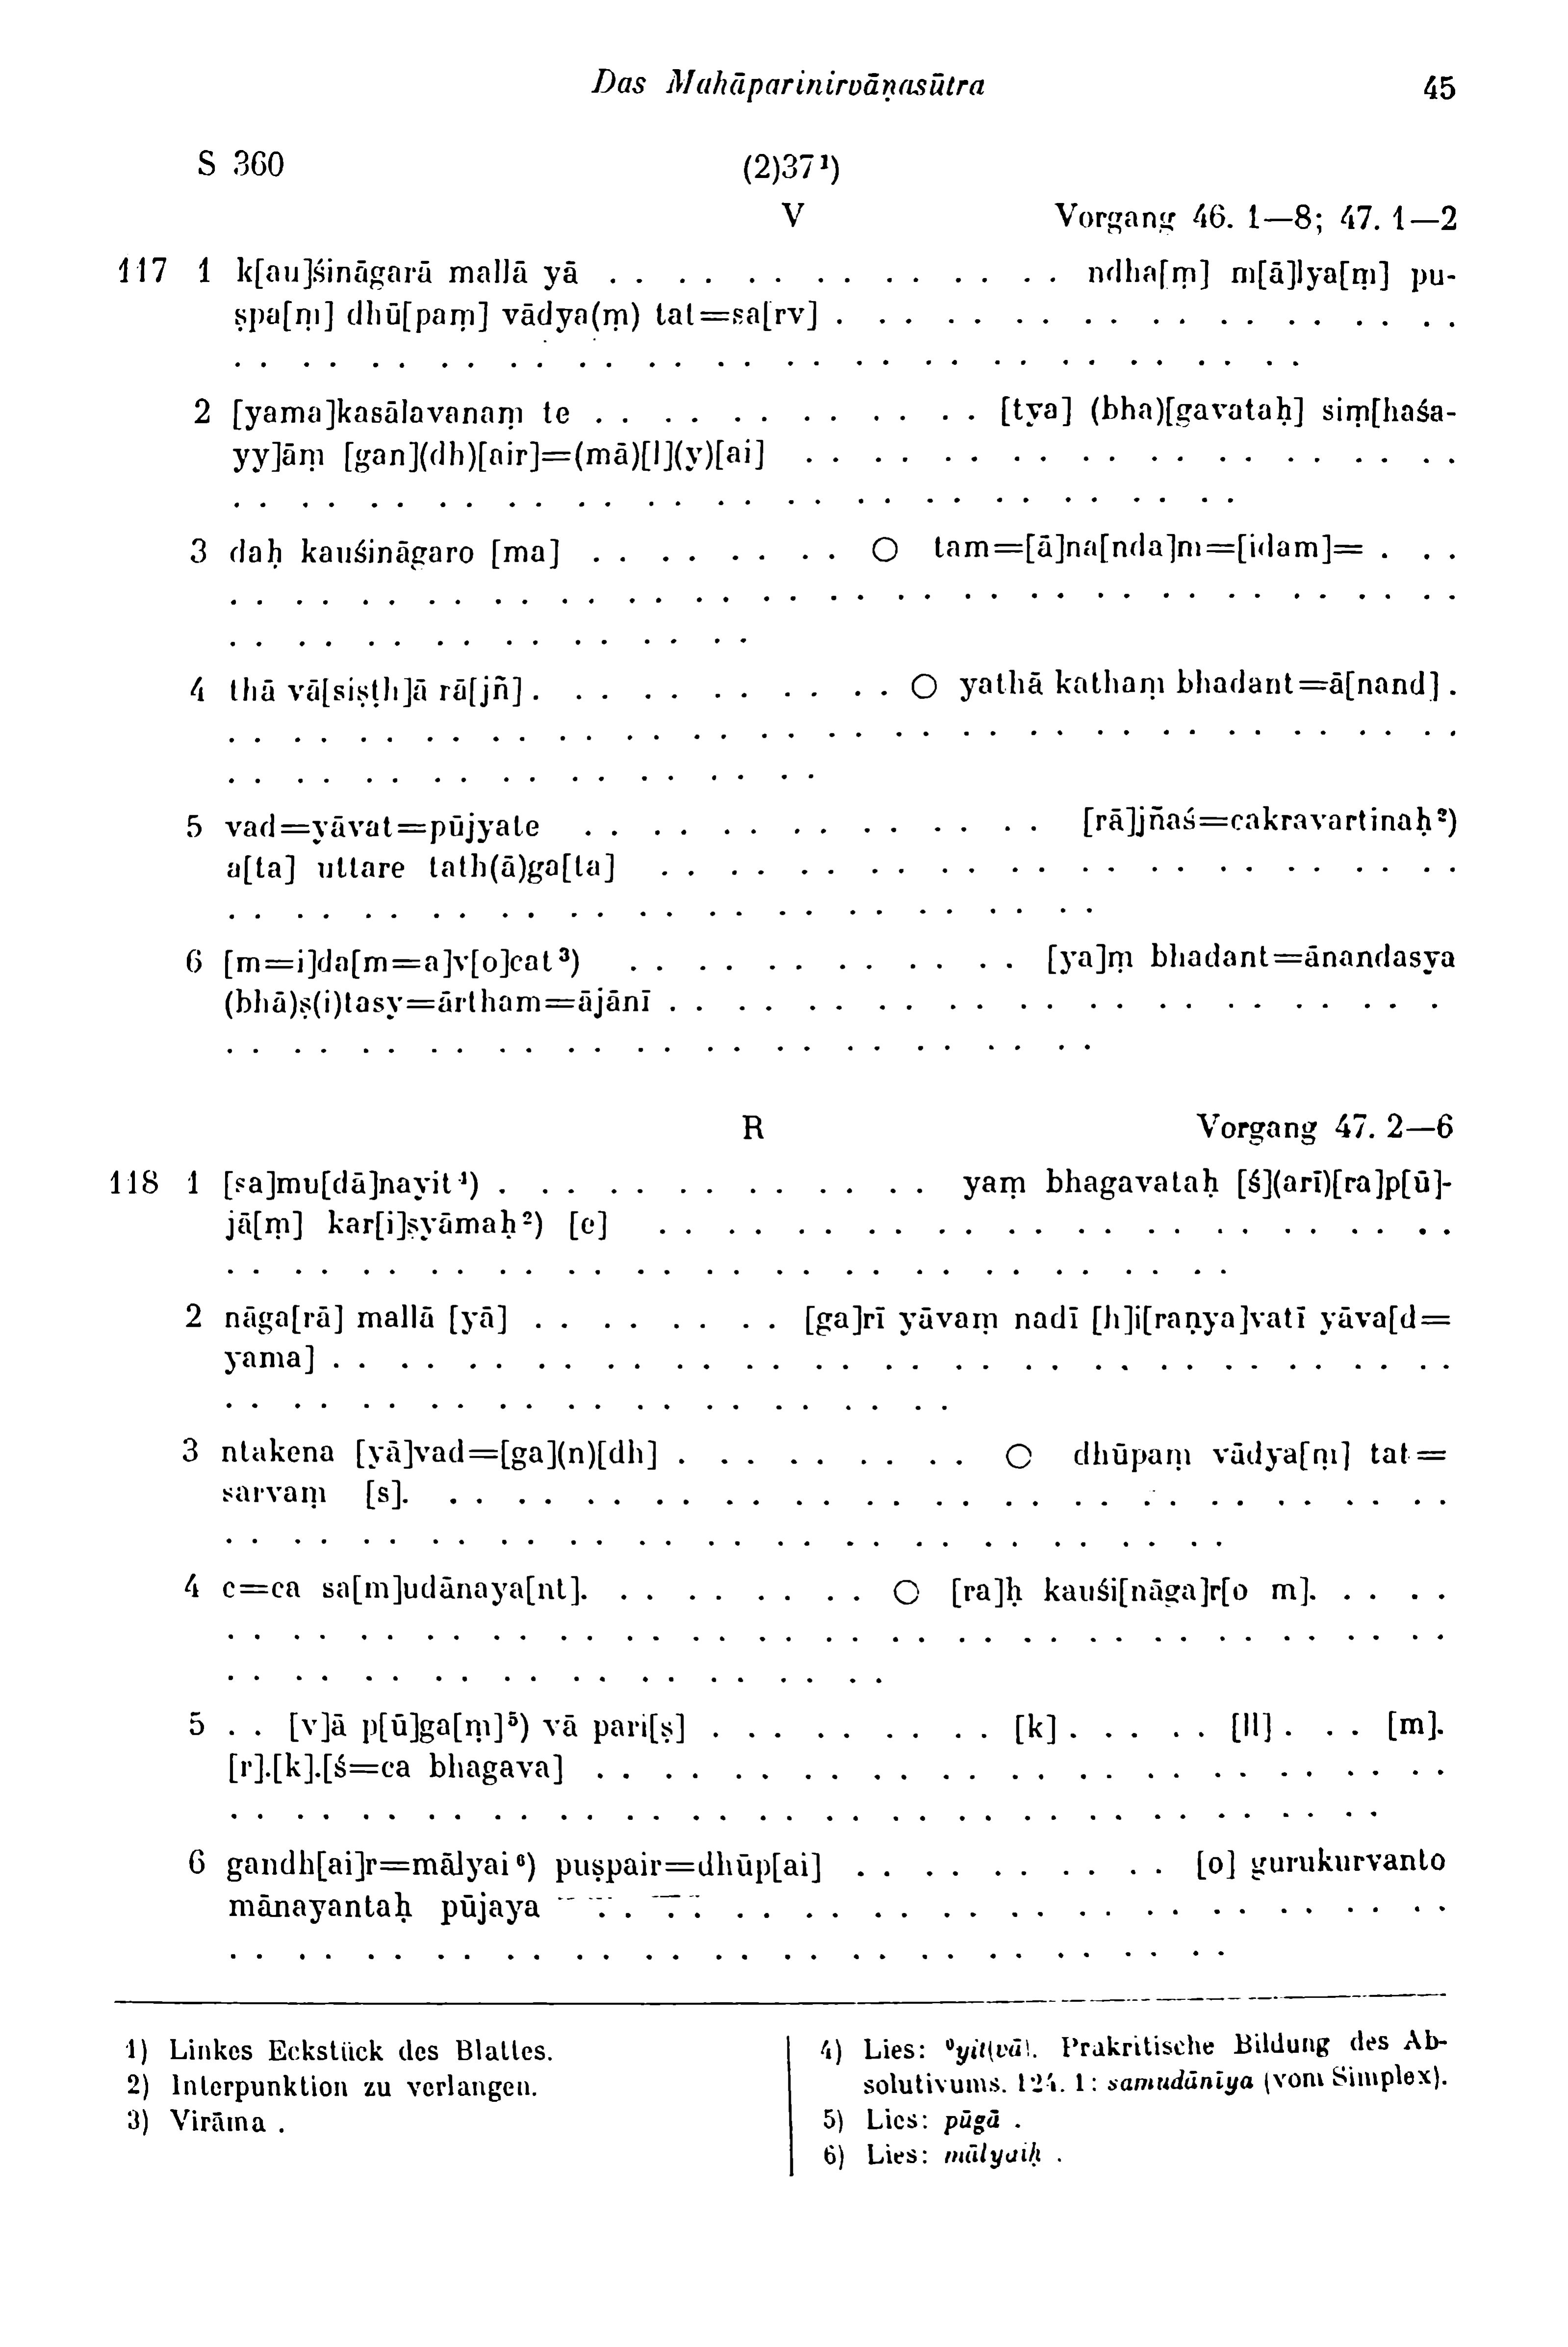 Das Mahāparinirvāṇasūtra 45
S 360 (2)37¹)
V Vorgang 46. 1—8; 47. 1—2
117 1 k[au]śināgarā mallā yā . . . . . . . . . . . . . . ndha[ṃ] m[ā]lya[ṃ] pu-
ṣpa[ṃ] dhū[paṃ] vādya(ṃ) tat=sa[rv] . . . . . . . . . . . . . . . . . . .
. . . . . . . . . . . . . . . . . . . . . . . . . . . . . . . .
2 [yama]kasālavanaṃ te . . . . . . . . . . . . [tya] (bha)[gavataḥ] siṃ[haśa-
yy]āṃ [gan](dh)[air]=(mā)[l](y)[ai] . . . . . . . . . . . . . . . . . . . .
. . . . . . . . . . . . . . . . . . . . . . . . . . . . . .
3 daḥ kauśināgaro [ma] . . . . . . . . ○ tam=[ā]na[nda]m=[idam]= . . .
. . . . . . . . . . . . . . . . . . . . . . . . . . . . . . . . . . . . . .
. . . . . . . . . . . . . . . .
4 thā vā[siṣṭh]ā rā[jñ] . . . . . . . . . . . ○ yathā kathaṃ bhadant=ā[nand] .
. . . . . . . . . . . . . . . . . . . . . . . . . . . . . . . . . . . . . .
. . . . . . . . . . . . . . . . . .
5 vad=yāvat=pūjyate . . . . . . . . . . . . . . [rā]jñaś=cakravartinaḥ²)
a[ta] uttare tath(ā)ga[ta] . . . . . . . . . . . . . . . . . . . . . . . .
. . . . . . . . . . . . . . . . . . . . . . . . . .
6 [m=i]da[m=a]v[o]cat³) . . . . . . . . . . . . [ya]ṃ bhadant=ānandasya
(bhā)ṣ(i)tasy=ārtham=ājānī . . . . . . . . . . . . . . . . . . . . . . .
. . . . . . . . . . . . . . . . . . . . . . . . . .
R Vorgang 47. 2—6
118 1 [sa]mu[dā]nayit⁴) . . . . . . . . . . . . . yaṃ bhagavataḥ [ś](arī)[ra]p[ū]-
jā[ṃ] kar[i]ṣyāmaḥ²) [e] . . . . . . . . . . . . . . . . . . . . . . . .
. . . . . . . . . . . . . . . . . . . . . . . . . . . . . .
2 nāga[rā] mallā [yā] . . . . . . . . [ga]rī yāvaṃ nadī [h]i[raṇya]vatī yāva[d=
yama] . . . . . . . . . . . . . . . . . . . . . . . . . . . . . . . . .
. . . . . . . . . . . . . . . . . . . . . .
3 ntakena [yā]vad=[ga](n)[dh] . . . . . . . . . ○ dhūpaṃ vādya[ṃ] tat=
sarvaṃ [s]. . . . . . . . . . . . . . . . . . . . . . . . . . . . . . .
. . . . . . . . . . . . . . . . . . . . . . . . . . . . . .
4 c=ca sa[m]udānaya[nt]. . . . . . . . . ○ [ra]ḥ kauśi[nāga]r[o m]. . . . .
. . . . . . . . . . . . . . . . . . . . . . . . . . . . . . . . . . . . .
. . . . . . . . . . . . . . . . . . . .
5 . . [v]ā p[ū]ga[ṃ]⁵) vā pari[ṣ] . . . . . . . . . [k] . . . . . [ll] . . . [m].
[r].[k].[ś=ca bhagava] . . . . . . . . . . . . . . . . . . . . . . . . . .
. . . . . . . . . . . . . . . . . . . . . . . . . . . . . . . . . . .
6 gandh[ai]r=mālyai⁶) puṣpair=dhūp[ai] . . . . . . . . . . [o] gurukurvanto
mānayantaḥ pūjaya . . . . . . . . . . . . . . . . . . . . . . . . . .
. . . . . . . . . . . . . . . . . . . . . . . . . . . . . .
1) Linkes Eckstück des Blattes.
2) Interpunktion zu verlangen.
3) Virāma .
4) Lies: ⁰yit(vā). Prakritische Bildung des Ab-
solutivums. 124. 1: samudānīya (vom Simplex).
5) Lies: pūgā .
6) Lies: mālyaiḥ .